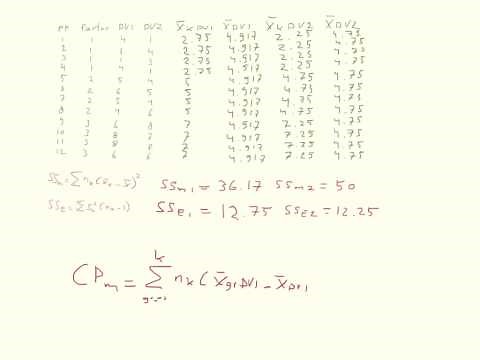 PP Factor DV1 DV2 X̄k DV1 X̄ DV1 X̄k DV2 X̄ DV2
1 1 4 1 2.75 4.917 2.25 4.75
2 1 1 4 2.75 4.917 2.25 4.75
3 1 1 3 2.75 4.917 2.25 4.75
4 1 4 1 2.75 4.917 2.25 4.75
5 2 5 4 5 4.917 4.75 4.75
6 2 6 5 5 4.917 4.75 4.75
7 2 5 4 5 4.917 4.75 4.75
8 2 4 6 5 4.917 4.75 4.75
9 3 6 8 7 4.917 7.25 4.75
10 3 8 7 4.917 7.25 4.75
11 3 8 7 4.917 7.25 4.75
12 3 6 6 7 4.917 7.25 4.75
SSm1 = 36.17 SSm2 = 50
SSE1 = 12.75 SSE2 = 12.25
CPm = k ∑ nk (X̄g1DV1 - X̄DV1